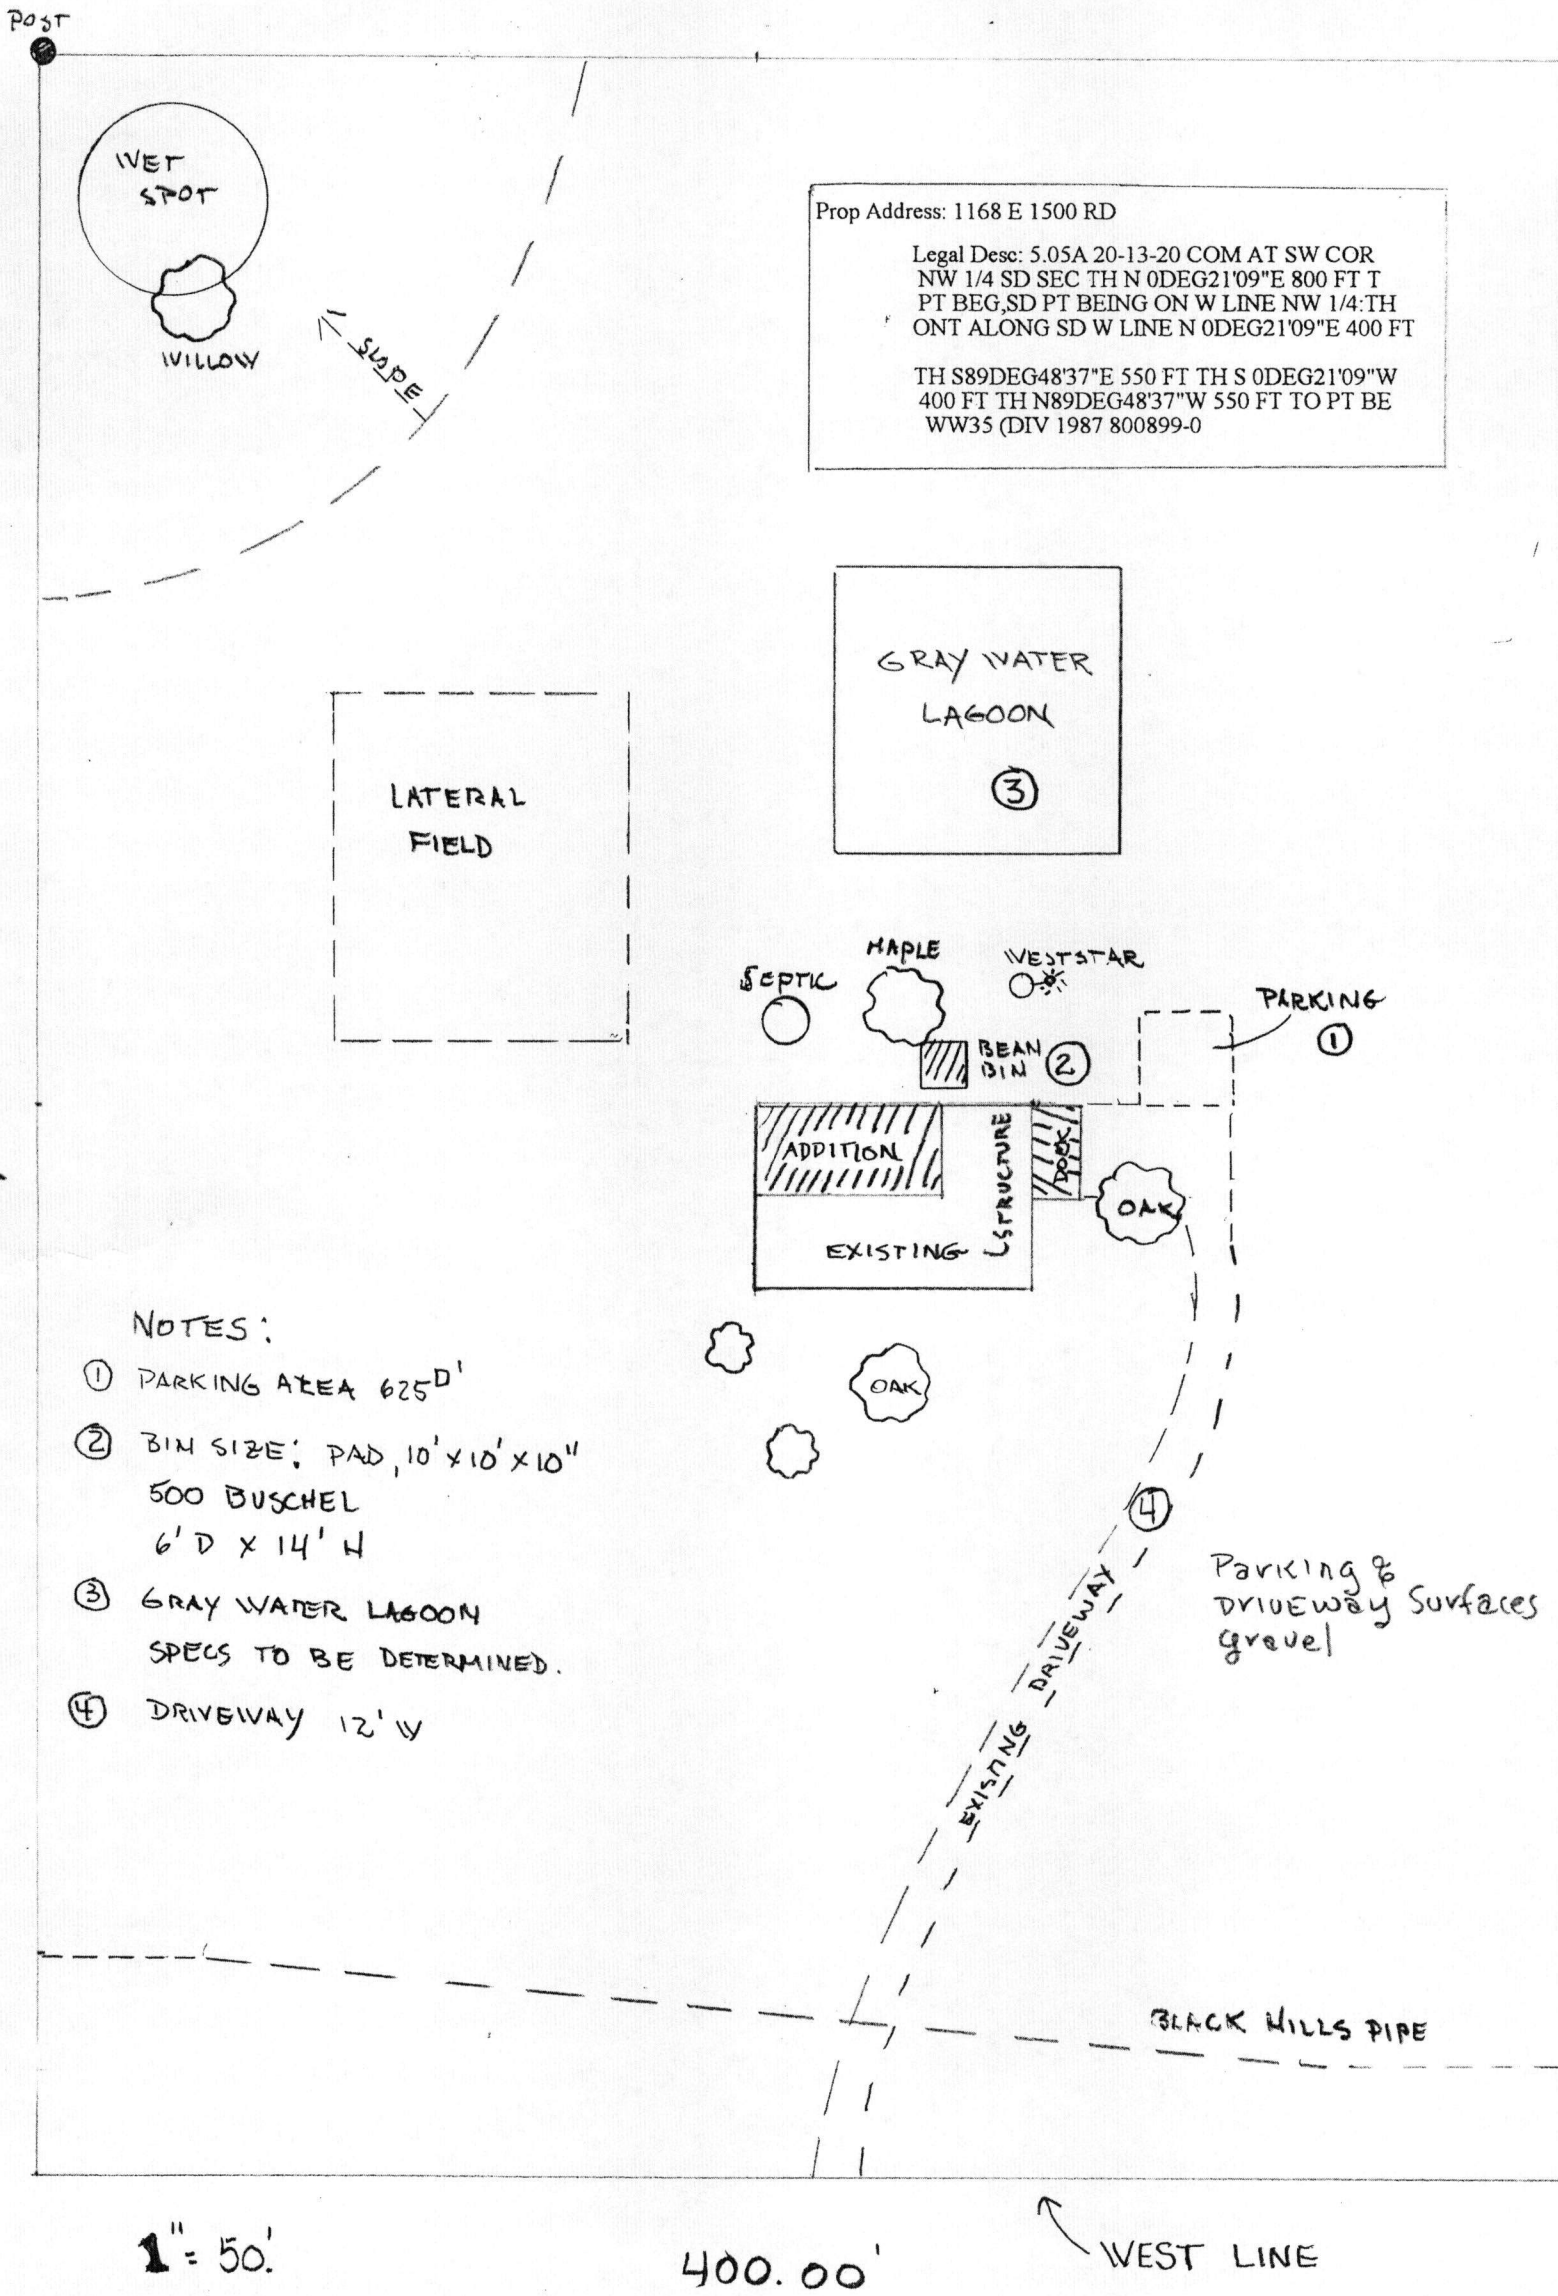 POST
WET
SPOT
WILLOW
SLOPE
Prop Address: 1168 E 1500 RD
Legal Desc: 5.05A 20-13-20 COM AT SW COR
NW 1/4 SD SEC TH N 0DEG21'09"E 800 FT T
PT BEG,SD PT BEING ON W LINE NW 1/4:TH
ONT ALONG SD W LINE N 0DEG21'09"E 400 FT
TH S89DEG48'37"E 550 FT TH S 0DEG21'09"W
400 FT TH N89DEG48'37"W 550 FT TO PT BE
WW35 (DIV 1987 800899-0
GRAY WATER
LAGOON
3
LATERAL
FIELD
SEPTIC
MAPLE
WESTSTAR
PARKING
1
BEAN
BIN 2
ADDITION
STRUCTURE
DOCK
OAK
EXISTING
OAK
NOTES:
1 PARKING AREA 625□'
2 BIN SIZE: PAD, 10' X 10' X 10"
500 BUSCHEL
6' D X 14' H
3 GRAY WATER LAGOON
SPECS TO BE DETERMINED.
4 DRIVEWAY 12' W
4
Parking &
DRIVEWay Surfaces
gravel
EXISTING DRIVEWAY
BLACK HILLS PIPE
1" = 50.'
400.00'
WEST LINE